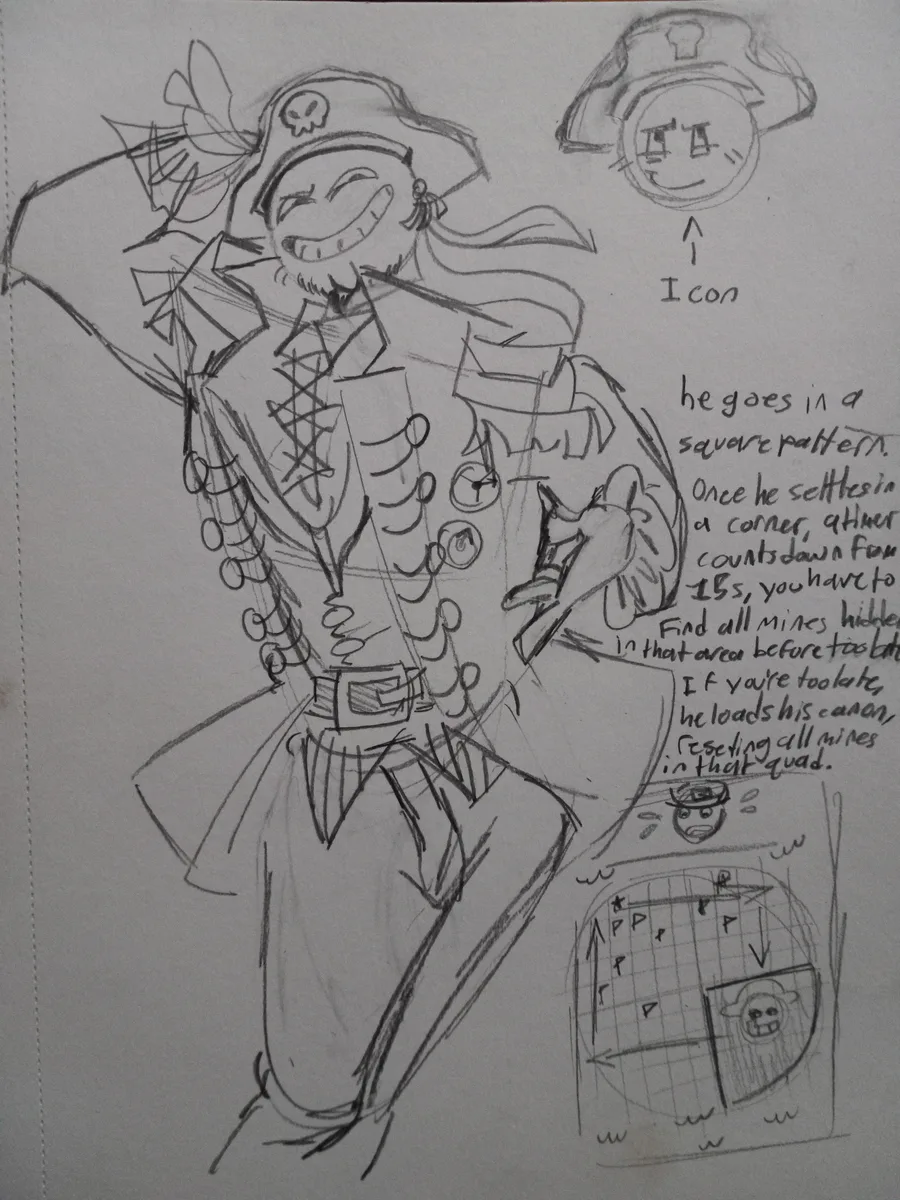 Icon
he goes in a
square pattern.
Once he settles in
a corner, a timer
counts down from
15s, you have to
Find all mines hidden
in that area before too late
If you're too late,
he loads his canon,
reseting all mines
in that quad.